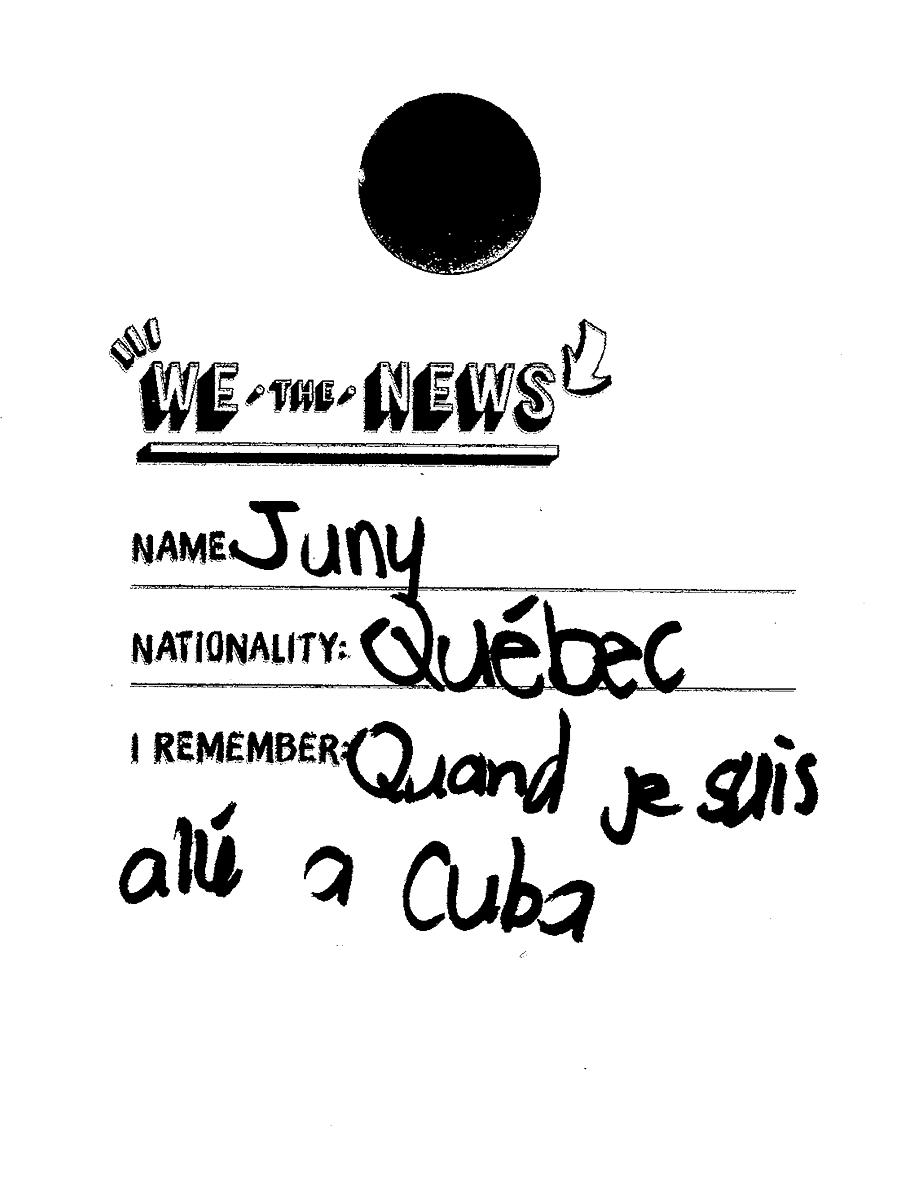 WE THE NEWS
NAME Juny
NATIONALITY: Québec
I REMEMBER: Quand je suis
allé a Cuba